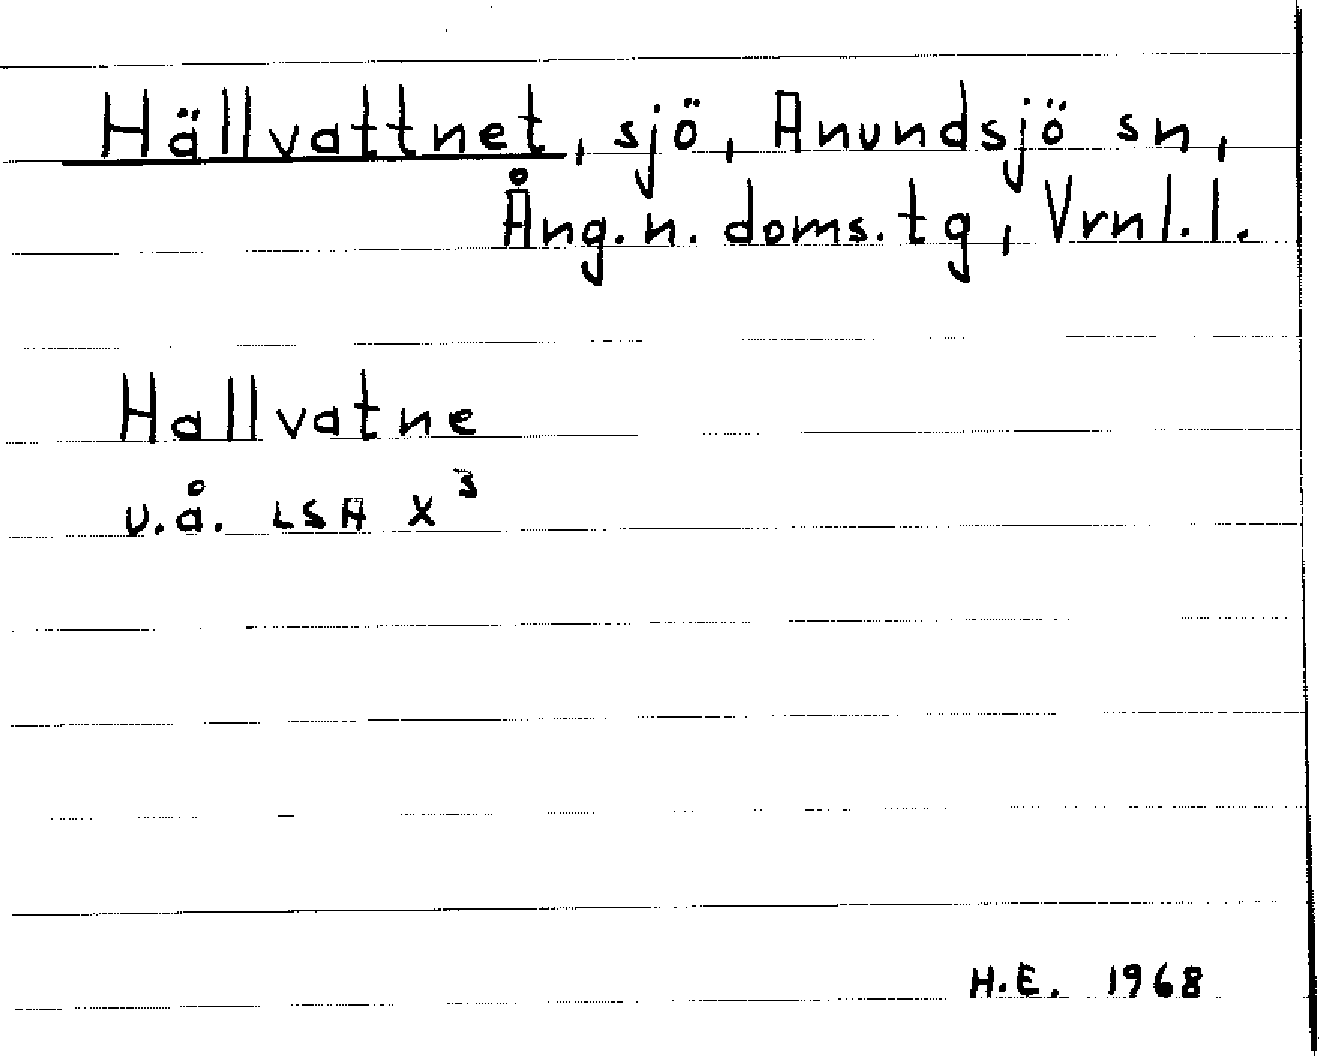 Hällvattnet, sjö, Anundsjö sn,
Ång.n. doms.tg, Vrnl.l.
Hallvatne
u.å. LSA X³
H.E. 1968